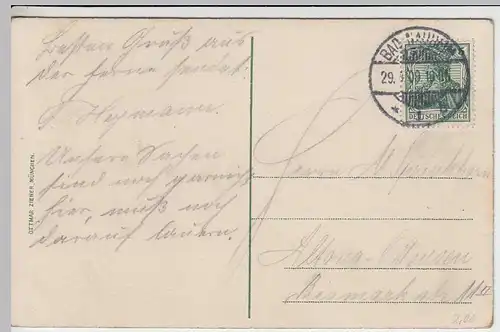 Besten Gruß aus
der Ferne sendet
Heymann.
Unsere Sachen
sind noch garnicht
hier, muß noch
darauf lauern.
OTTMAR ZIEHER, MÜNCHEN.
BAD
29.
DEUTSCHES REICH
Herrn M
Altona-Ottensen
Bismarckstr. 11 II
2,00